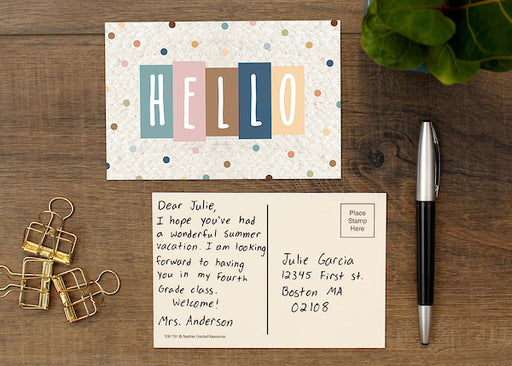 HELLO
Dear Julie,
I hope you've had
a wonderful summer
vacation. I am looking
forward to having
you in my Fourth
Grade class.
Welcome!
Mrs. Anderson
TCR 7151 © Teacher Created Resources
Place
Stamp
Here
Julie Garcia
12345 First St.
Boston MA
02108